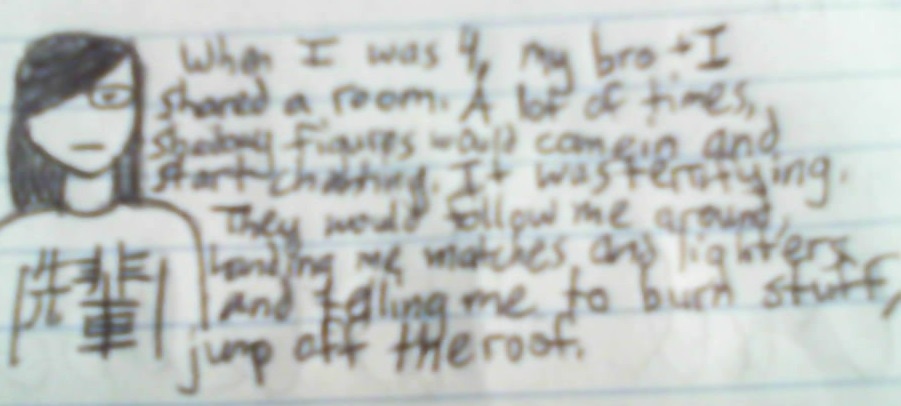 When I was 4, my bro + I
shared a room. A lot of times,
shadowy figures would come in and
start chatting. It was terrifying.
They would follow me around,
handing me matches and lighters
and telling me to burn stuff,
jump off the roof.
先輩